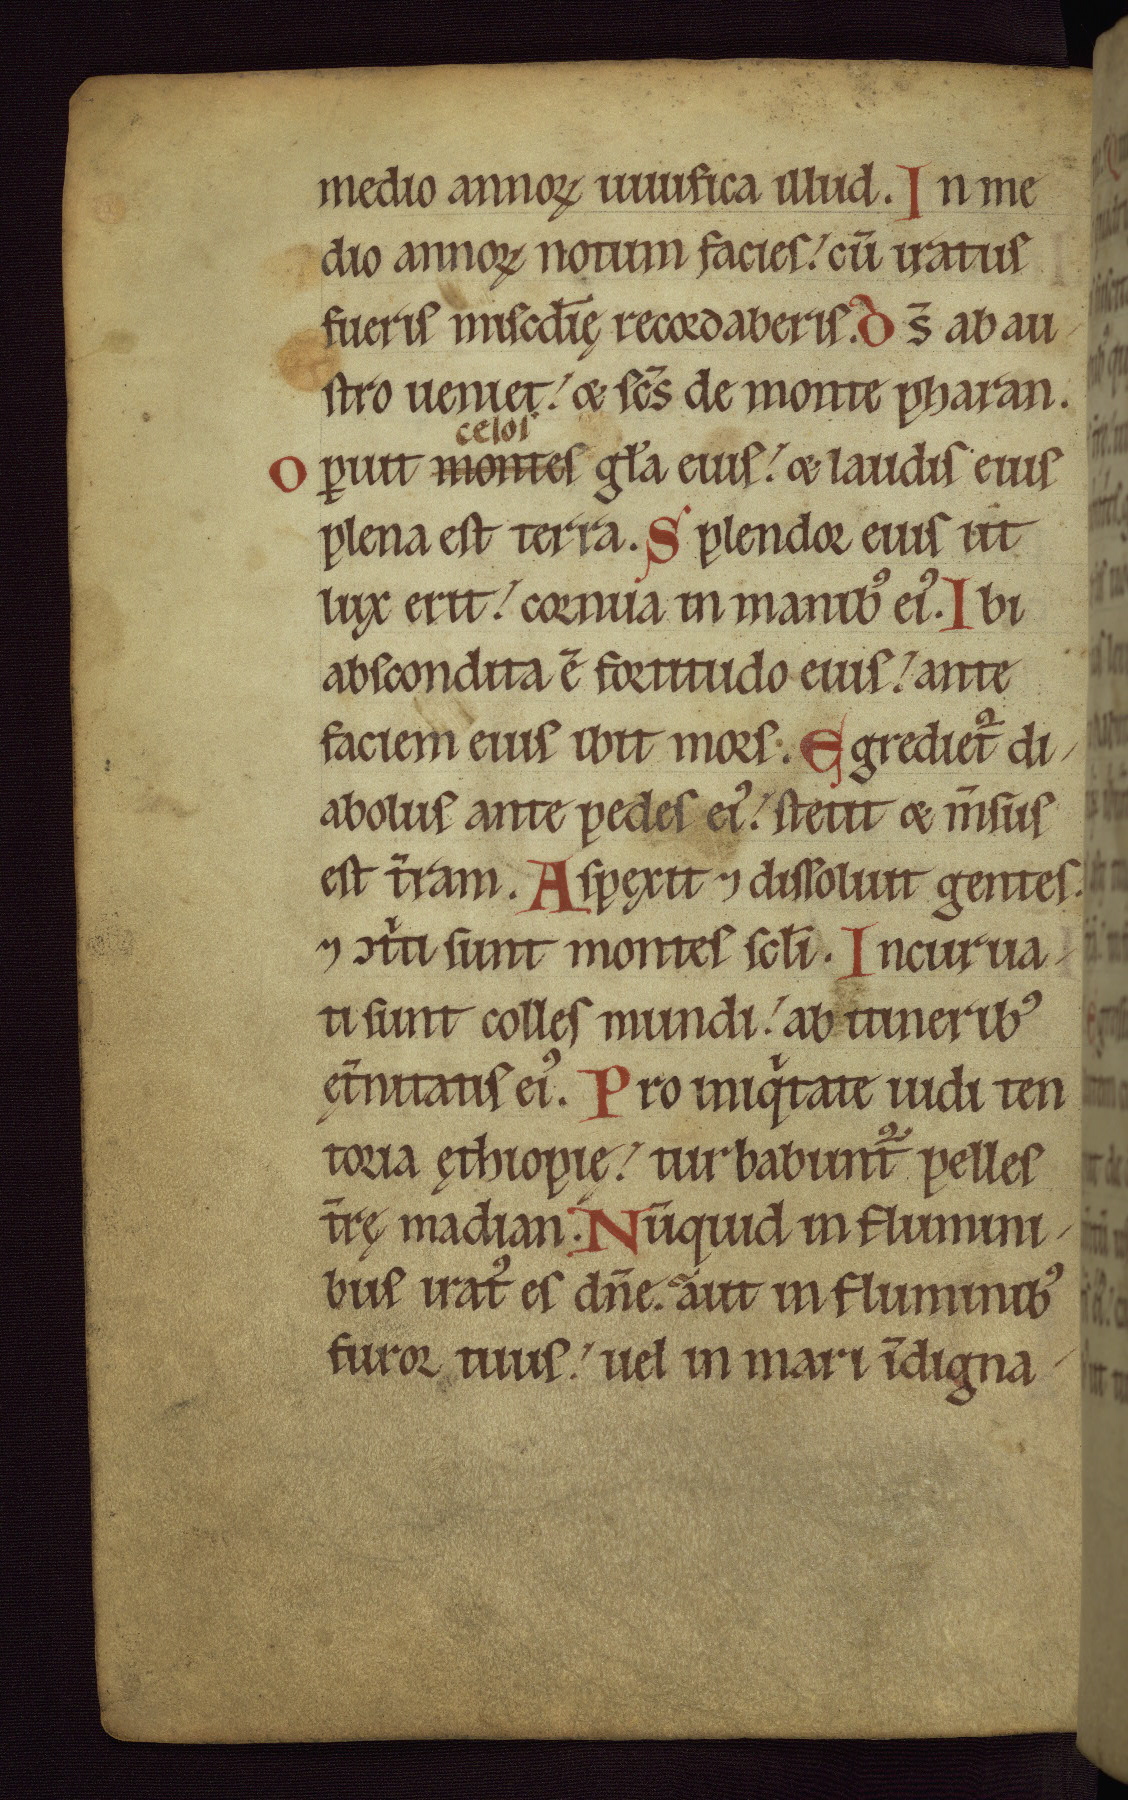 medio annoꝝ uiuifica illud. In me
dio annoꝝ notum facies! cū iratus
fueris miscđię recordaberis. Ds̄ ab au
stro ueniet! & scs̄ de monte pharan.
celos
Oꝑuit montes gła eius! & laudis eius
plena est terra. Splendor eius ut
lux erit! cornua in manibꝰ eiꝰ. Ibi
abscondita ē fortitudo eius! ante
faciem eius ibit mors. Egrediet᷑ di-
abolus ante pedes eiꝰ! stetit & m̄sus
est t̄ram. Aspęxit ⁊ dissoluit gentes.
⁊ ꝯtͥti sunt montes scłi. Incurua-
ti sunt colles mundi! ab itineribꝰ
ęt̄nitatis eiꝰ. Pro iniqͥtate uidi ten
toria ęthiopię! turbabunt᷑ pelles
t̄rę madian. Nūquid in flumini-
bus iratꝰ es dn̄e. aut in fluminibꝰ
furor tuus! uel in mari īdigna-